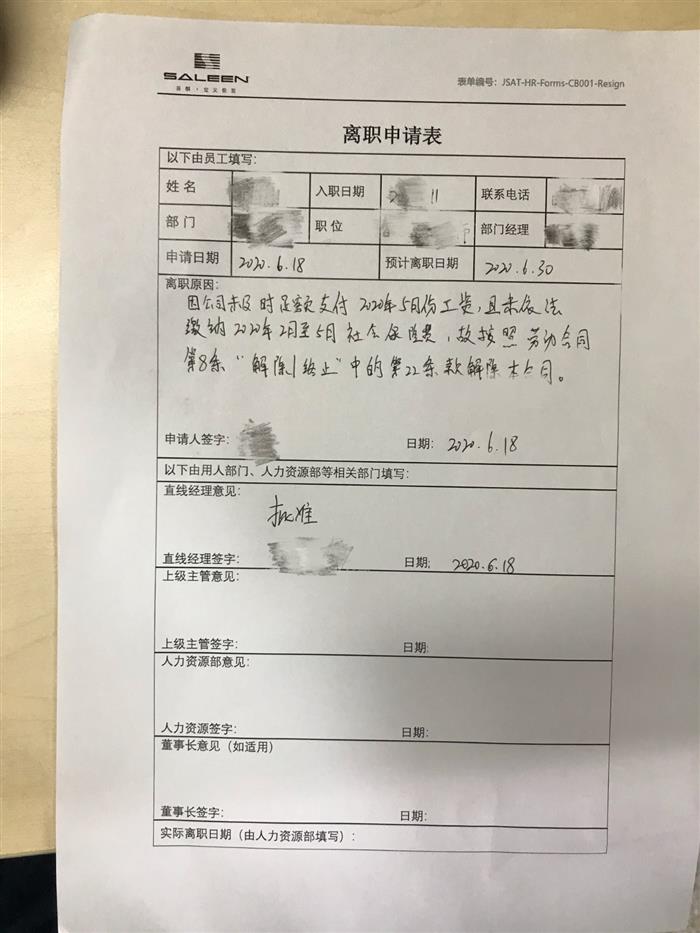 SALEEN
表单编号：JSAT-HR-Forms-CB001-Resign
离职申请表
以下由员工填写：
姓 名 入职日期 11 联系电话
部 门 职 位 部门经理
申请日期 2020.6.18 预计离职日期 2020.6.30
离职原因：
因公司未及时足额支付2020年5月份工资，且未依法
缴纳2020年2月至5月社会保险费，故按照劳动合同
第8条“解除/终止”中的第22条款解除本合同。
申请人签字： 日期： 2020.6.18
以下由用人部门、人力资源部等相关部门填写：
直线经理意见：
批准
直线经理签字： 日期; 2020.6.18
上级主管意见：
上级主管签字： 日期:
人力资源部意见：
人力资源签字： 日期:
董事长意见（如适用）
董事长签字： 日期:
实际离职日期（由人力资源部填写）：